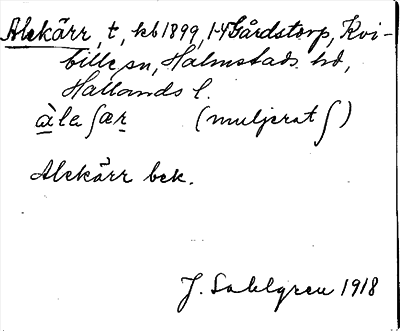 Alekärr, t, kb 1899, 1-4 Gårdstorp, Kvi-
bille sn, Halmstads hd,
Hallands l.
àleʃær (muljerat ʃ)
Alekärr bek.
J. Sahlgren 1918